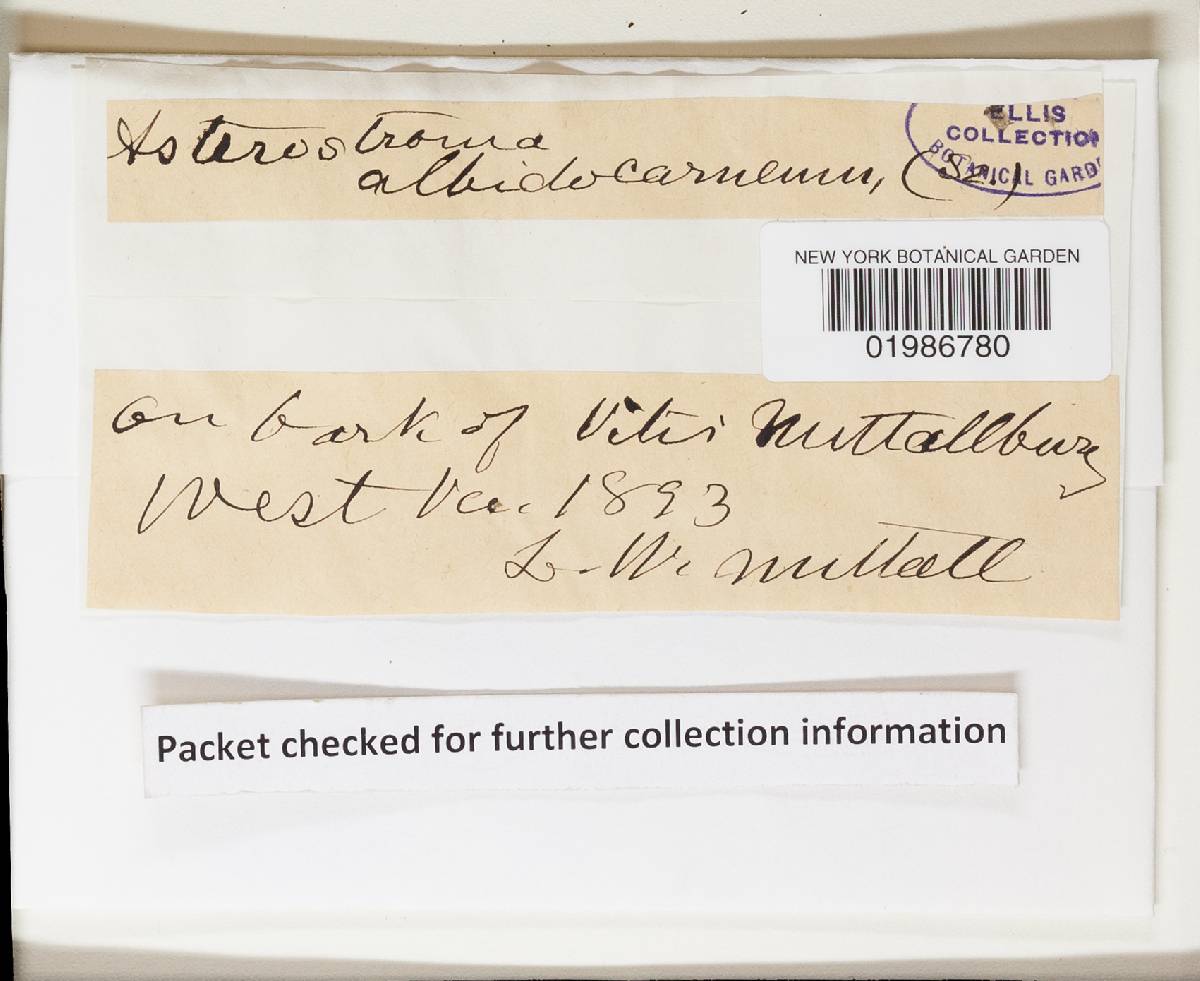 Asterostroma
albidocarneum, (Sz.)
ELLIS
COLLECTION
BOTANICAL GARD
NEW YORK BOTANICAL GARDEN
01986780
on bark of Vitis Nuttallburg
West Va. 1893
L. W. Nuttall
Packet checked for further collection information